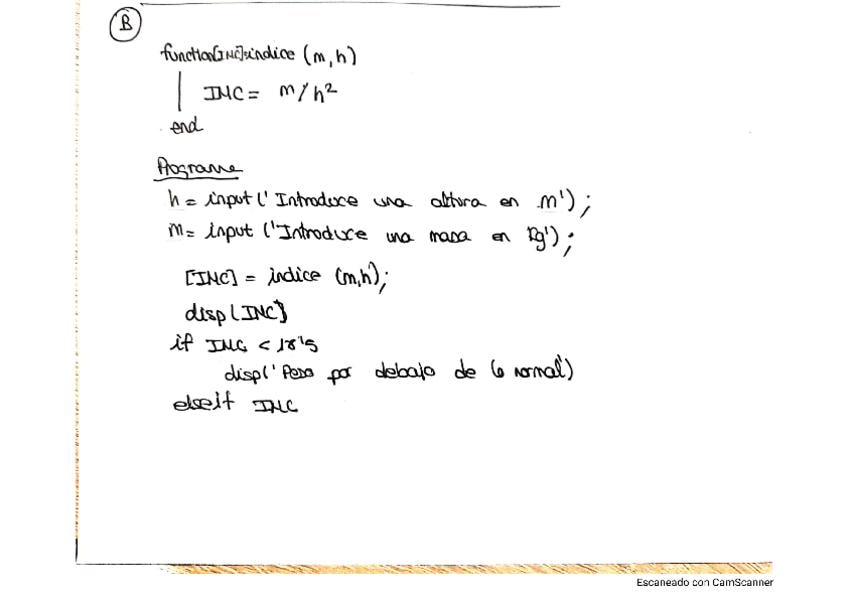 B
function[INC]=indice (m,h)
INC = m/h²
end
Programa
h = input (' Introduce una altura en m') ;
m= input ('Introduce una masa en kg') ;
[INC] = indice (m,h);
disp(INC)
if INC < 18'5
disp(' Peso por debajo de lo normal')
elseif INC
Escaneado con CamScanner